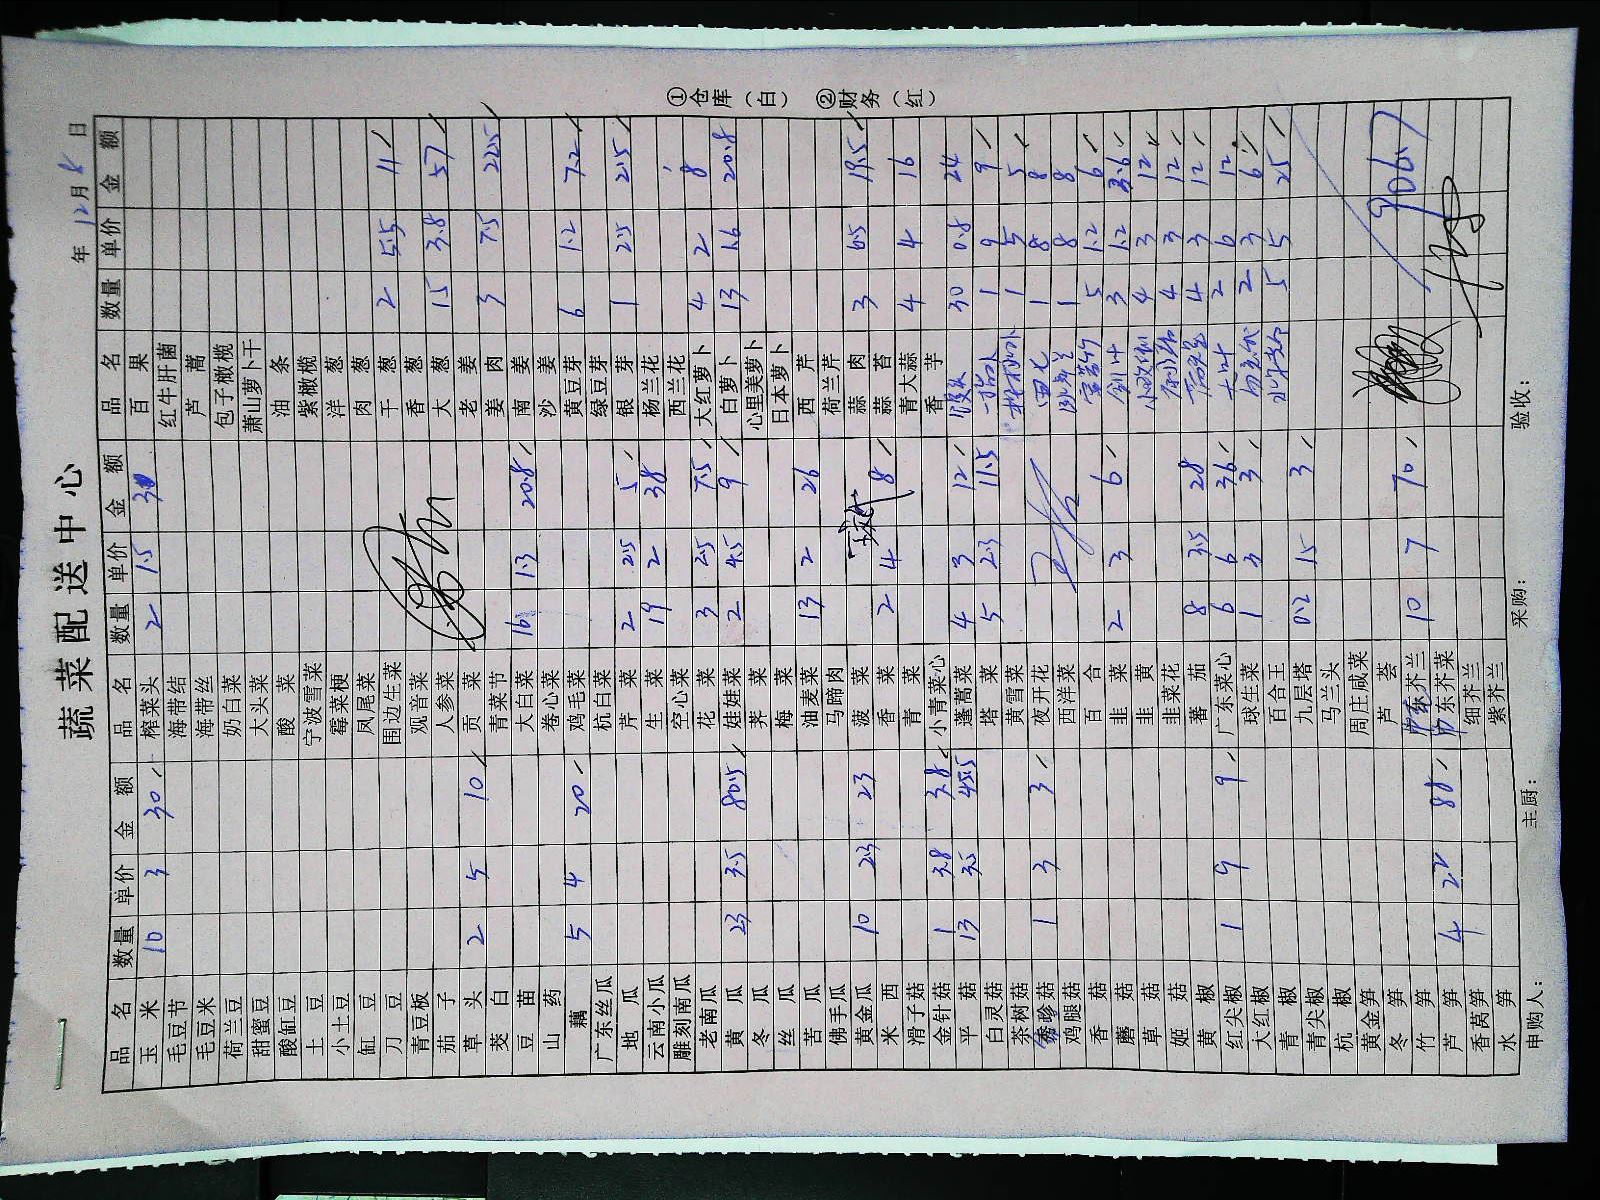 蔬菜配送中心
年 12月 8日
品名 数量 单价 金额 品名 数量 单价 金额 品名 数量 单价 金额
玉米 10 3 30 榨菜头 2 1.5 30 百果
毛豆节 海带结 红牛肝菌
毛豆米 海带丝 芦蒿
荷兰豆 奶白菜 包子橄榄
甜蜜豆 大头菜 萧山萝卜干
酸缸豆 酸菜 油条
土豆 宁波雪菜 紫橄榄
小土豆 霉菜梗 洋葱
缸豆 凤尾菜 肉葱
刀豆 围边生菜 干葱 2 5.5 11
青豆板 观音菜 香葱
茄子 人参菜 大葱 15 3.8 57
草头 2 5 10 贡菜 老姜
茭白 青菜节 姜肉 3 7.5 22.5
豆苗 大白菜 16 1.3 20.8 南姜
山药 卷心菜 沙姜
藕 5 4 20 鸡毛菜 黄豆芽 6 1.2 7.2
广东丝瓜 杭白菜 绿豆芽
地瓜 芹菜 2 2.5 5 银芽 1 2.5 2.5
云南小瓜 生菜 19 2 38 杨兰花
雕刻南瓜 空心菜 西兰花
老南瓜 花菜 3 2.5 7.5 大红萝卜 4 2 8
黄瓜 23 3.5 80.5 娃娃菜 2 4.5 9 白萝卜 13 1.6 20.8
冬瓜 荠菜 心里美萝卜
丝瓜 梅菜 日本萝卜
苦瓜 油麦菜 13 2 26 西芹
佛手瓜 马蹄肉 荷兰芹
黄金瓜 10 2.3 23 菠菜 蒜肉 3 6.5 19.5
米西 香菜 2 4 8 蒜苔
滑子菇 青菜 青大蒜 4 4 16
金针菇 1 3.8 3.8 小青菜心 香芋
平菇 13 3.5 45.5 蓬蒿菜 4 3 12 30 0.8 24
白灵菇 塔菜 5 2.3 11.5 1 9 9
茶树菇 黄雪菜 1 5 5
秀珍菇 1 3 3 夜开花 1 8 8
鸡腿菇 西洋菜 1 8 8
香菇 百合 5 1.2 6
蘑菇 韭菜 2 3 6 3 1.2 3.6
草菇 韭黄 4 3 12
姬菇 韭菜花 4 3 12
黄椒 蕃茄 8 3.5 28 4 3 12
红尖椒 1 9 9 广东菜心 6 6 36 大叶 2 6 12
大红椒 球生菜 1 3 3 2 3 6
青椒 百合王 5 5 25
青尖椒 九层塔 0.2 15 3
杭椒 马兰头
黄金笋 周庄咸菜
冬笋 芦荟
竹笋 广东芥兰 10 7 70 906.7
芦笋 4 22 88 广东芥菜
香莴笋 细芥兰
水笋 紫芥兰
申购人： 主厨： 采购： 验收：
①仓库（白） ②财务（红）